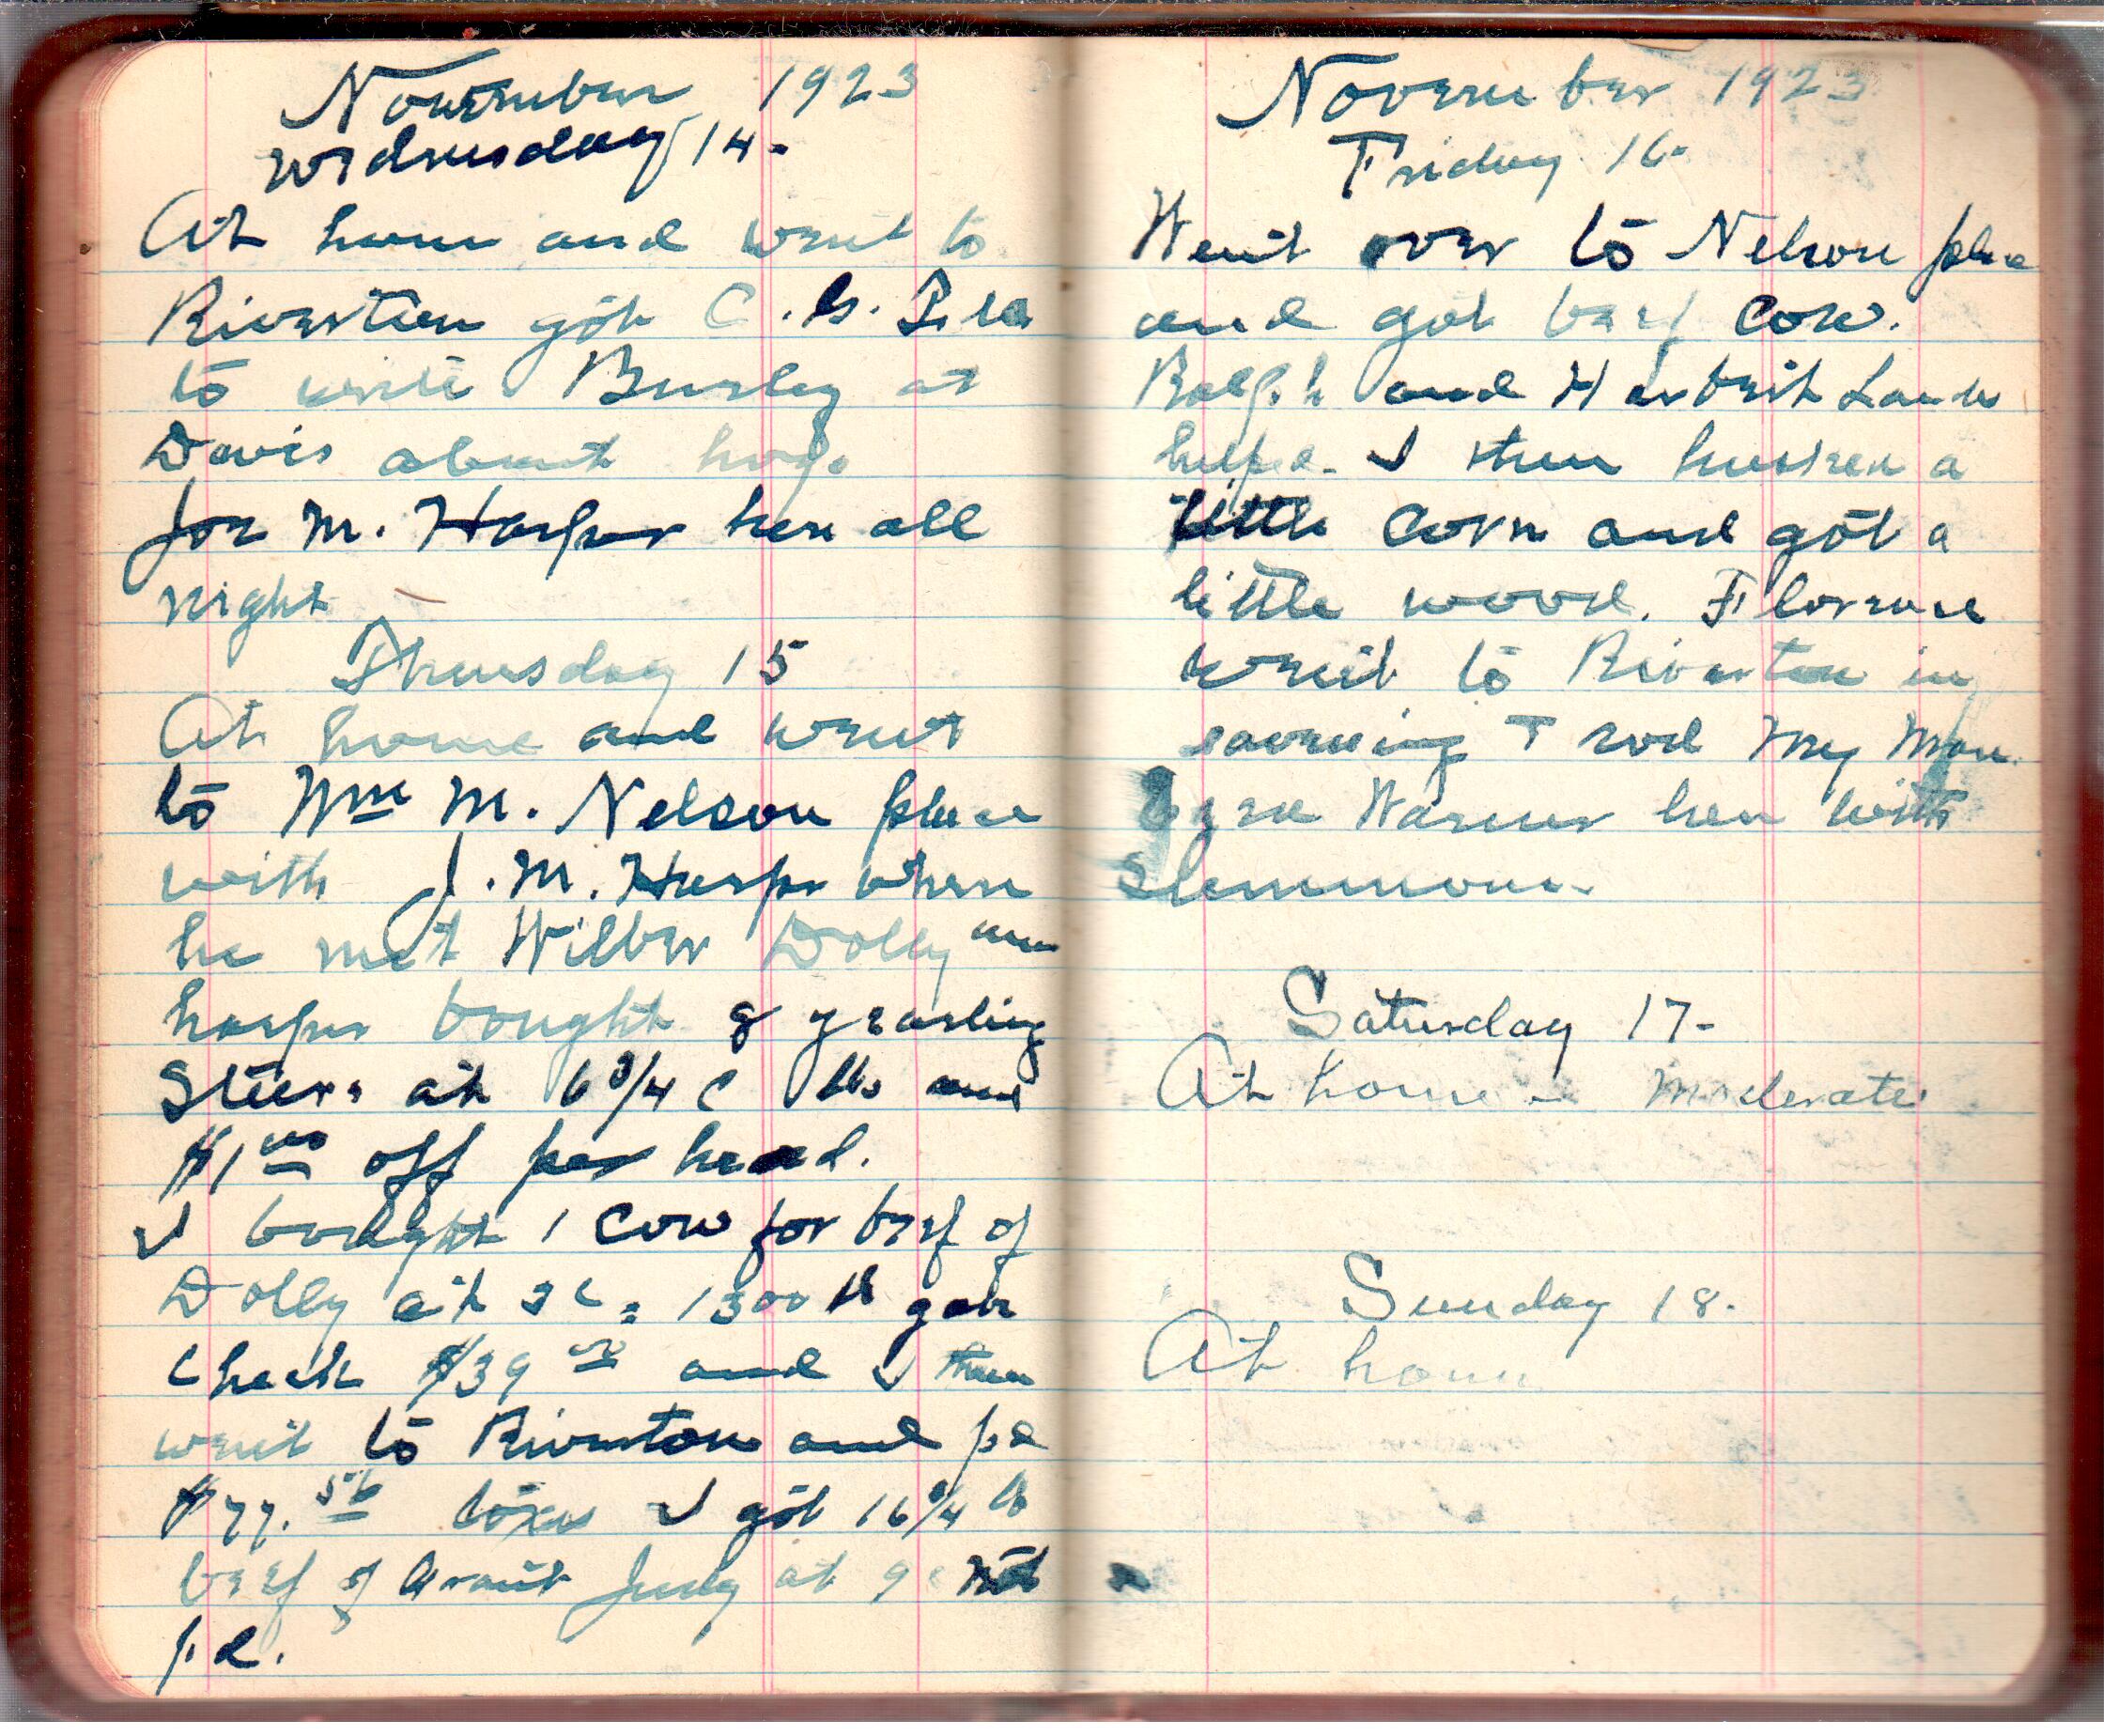 November 1923
Wednesday 14-
At home and went to
Riverton got C. G.
to write Burley at
Davis about hogs
Joe M. Harper here all
night
Thursday 15
At home and went
to Wm M. Nelson place
with J. M. Harper where
he met Wilber Dolly and
harper bought 8 yearling
Steers at 6 3/4 c lb and
$1 00 off per head.
I bought 1 Cow for beef of
Dolly at 3 c = 1300 lb gave
Check $39 00 and I then
went to Riverton and pd
$77. 56 taxes I got 16 3/4 lb
beef of Grant Judy at 9 c not
pd.
November 1923
Friday 16-
Went over to Nelson place
and got beef Cow.
Ralph and Herbert
helped. I then husked a
little Corn and got a
little wood. Florence
went to Riverton in
evening I rode My Mare
Warner here with
Slemmons.
Saturday 17-
At home - Moderate
Sunday 18.
At home